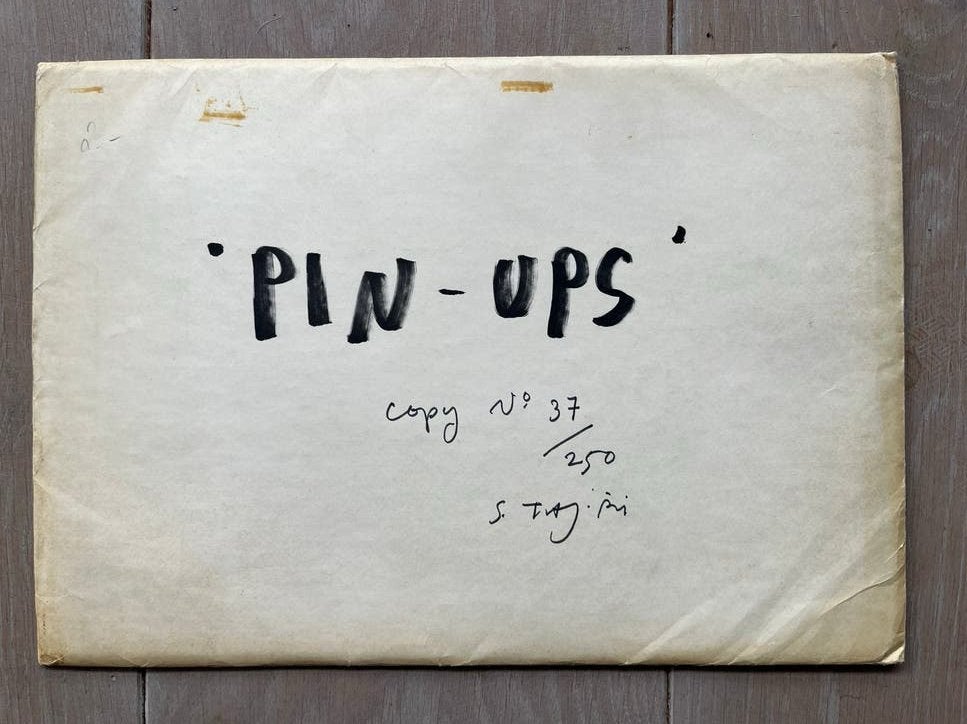 'PIN-UPS'
copy Nº 37
/250
S. Tajiri